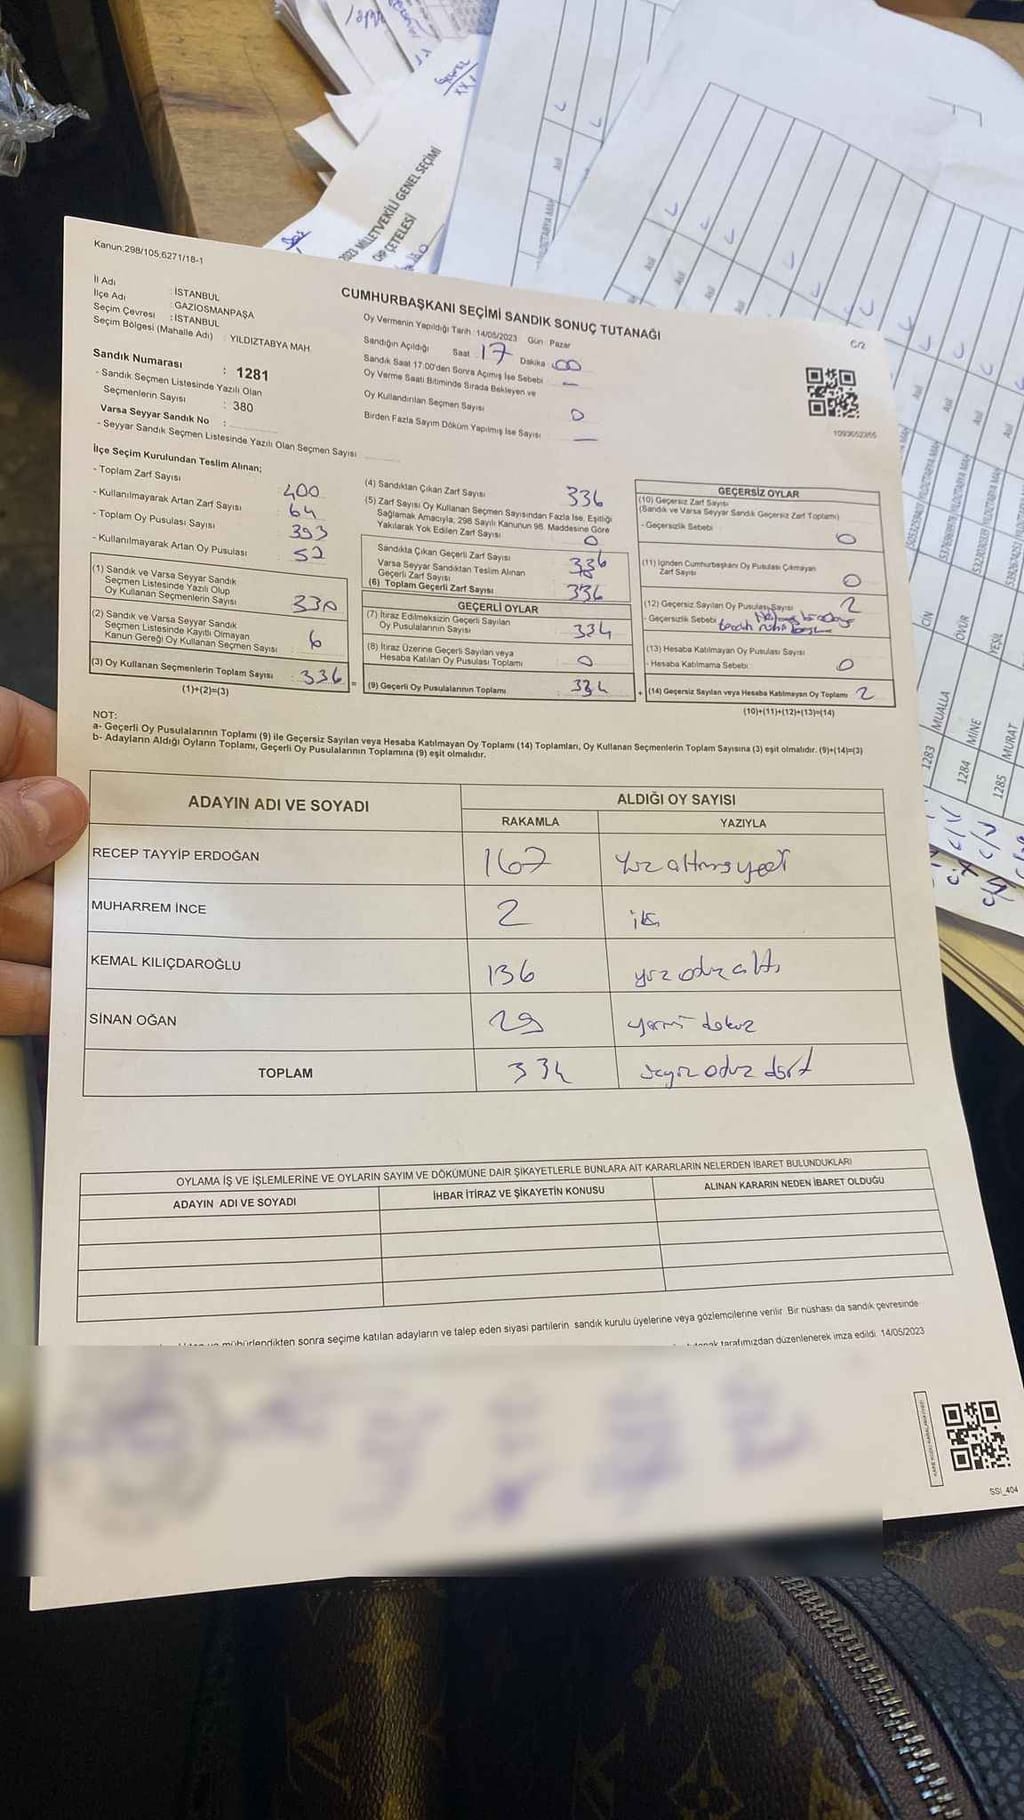 Kanun:298/105,6271/18-1
İl Adı : İSTANBUL
İlçe Adı : GAZİOSMANPAŞA
Seçim Çevresi : İSTANBUL
Seçim Bölgesi (Mahalle Adı) : YILDIZTABYA MAH.
Sandık Numarası : 1281
- Sandık Seçmen Listesinde Yazılı Olan
Seçmenlerin Sayısı : 380
Varsa Seyyar Sandık No :
- Seyyar Sandık Seçmen Listesinde Yazılı Olan Seçmen Sayısı
CUMHURBAŞKANI SEÇİMİ SANDIK SONUÇ TUTANAĞI
C/2
Oy Vermenin Yapıldığı Tarih : 14/05/2023 Gün : Pazar
Sandığın Açıldığı Saat : 17 Dakika : 00
Sandık Saat 17:00'den Sonra Açılmış İse Sebebi —
Oy Verme Saati Bitiminde Sırada Bekleyen ve
Oy Kullandırılan Seçmen Sayısı 0
Birden Fazla Sayım Döküm Yapılmış İse Sayısı —
1093652355
İlçe Seçim Kurulundan Teslim Alınan;
- Toplam Zarf Sayısı 400
- Kullanılmayarak Artan Zarf Sayısı 64
- Toplam Oy Pusulası Sayısı 393
- Kullanılmayarak Artan Oy Pusulası 52
(1) Sandık ve Varsa Seyyar Sandık
Seçmen Listesinde Yazılı Olup
Oy Kullanan Seçmenlerin Sayısı 330
(2) Sandık ve Varsa Seyyar Sandık
Seçmen Listesinde Kayıtlı Olmayan
Kanun Gereği Oy Kullanan Seçmen Sayısı 6
(3) Oy Kullanan Seçmenlerin Toplam Sayısı 336 =
(1)+(2)=(3)
(4) Sandıktan Çıkan Zarf Sayısı 336
(5) Zarf Sayısı Oy Kullanan Seçmen Sayısından Fazla İse, Eşitliği
Sağlamak Amacıyla, 298 Sayılı Kanunun 98. Maddesine Göre
Yakılarak Yok Edilen Zarf Sayısı 0
Sandıkta Çıkan Geçerli Zarf Sayısı 336
Varsa Seyyar Sandıktan Teslim Alınan
Geçerli Zarf Sayısı
(6) Toplam Geçerli Zarf Sayısı 336
GEÇERLİ OYLAR
(7) İtiraz Edilmeksizin Geçerli Sayılan
Oy Pusulalarının Sayısı 334
(8) İtiraz Üzerine Geçerli Sayılan veya
Hesaba Katılan Oy Pusulası Toplamı 0
(9) Geçerli Oy Pusulalarının Toplamı 334 +
GEÇERSİZ OYLAR
(10) Geçersiz Zarf Sayısı
(Sandık ve Varsa Seyyar Sandık Geçersiz Zarf Toplamı)
- Geçersizlik Sebebi : 0
(11) İçinden Cumhurbaşkanı Oy Pusulası Çıkmayan
Zarf Sayısı 0
(12) Geçersiz Sayılan Oy Pusulası Sayısı 2
- Geçersizlik Sebebi
(13) Hesaba Katılmayan Oy Pusulası Sayısı
- Hesaba Katılmama Sebebi : 0
(14) Geçersiz Sayılan veya Hesaba Katılmayan Oy Toplamı 2
(10)+(11)+(12)+(13)=(14)
NOT:
a- Geçerli Oy Pusulalarının Toplamı (9) ile Geçersiz Sayılan veya Hesaba Katılmayan Oy Toplamı (14) Toplamları, Oy Kullanan Seçmenlerin Toplam Sayısına (3) eşit olmalıdır. (9)+(14)=(3)
b- Adayların Aldığı Oyların Toplamı, Geçerli Oy Pusulalarının Toplamına (9) eşit olmalıdır.
ADAYIN ADI VE SOYADI
ALDIĞI OY SAYISI
RAKAMLA YAZIYLA
RECEP TAYYİP ERDOĞAN 167 yüz altmış yedi
MUHARREM İNCE 2 iki
KEMAL KILIÇDAROĞLU 136 yüz otuz altı
SİNAN OĞAN 29 yirmi dokuz
TOPLAM 334 otuz dört
OYLAMA İŞ VE İŞLEMLERİNE VE OYLARIN SAYIM VE DÖKÜMÜNE DAİR ŞİKAYETLERLE BUNLARA AİT KARARLARIN NELERDEN İBARET BULUNDUKLARI
ADAYIN ADI VE SOYADI İHBAR İTİRAZ VE ŞİKAYETİN KONUSU ALINAN KARARIN NEDEN İBARET OLDUĞU
mühürlendikten sonra seçime katılan adayların ve talep eden siyasi partilerin sandık kurulu üyelerine veya gözlemcilerine verilir. Bir nüshası da sandık çevresinde
tarafımızdan düzenlenerek imza edildi. 14/05/2023
SSİ_404
2023 MİLLETVEKİLİ GENEL SEÇİMİ
OY ÇETELESİ
1283 MUALLA
1284 MİNE
1285 MURAT YEŞİL